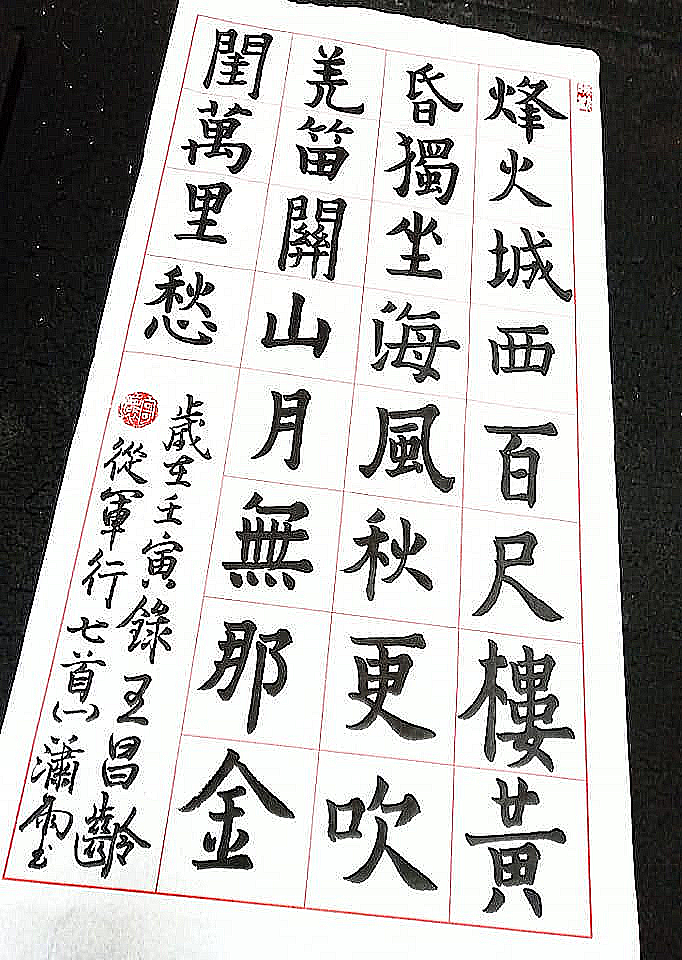 烽火城西百尺樓黃
昏獨坐海風秋更吹
羌笛關山月無那金
閨萬里愁
歲在壬寅錄王昌齡
從軍行七首其一瀟雨